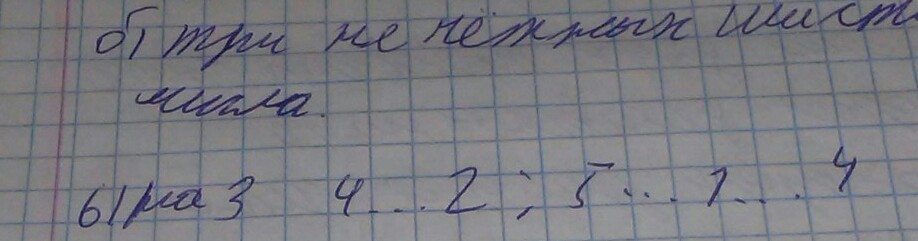 б) три не чётных шист
числа.
б) на 3 4...2; 5...1...4